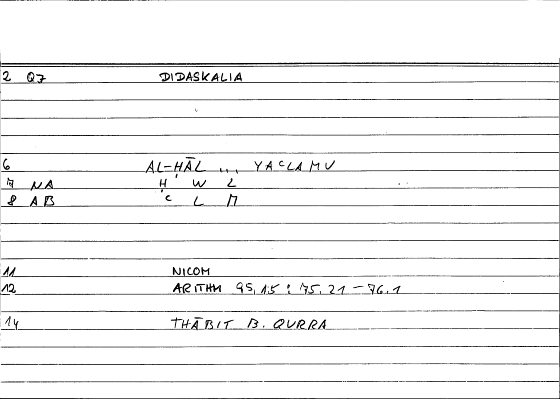 2 Q7 DIDASKALIA
6 AL-ḤĀL ... YAᶜLAMU
7 NA Ḥ W L
8 AB ᶜ L M
11 NICOM
12 ARITHM 95,15 : 75,21 - 76,1
14 THĀBIT B. QURRA